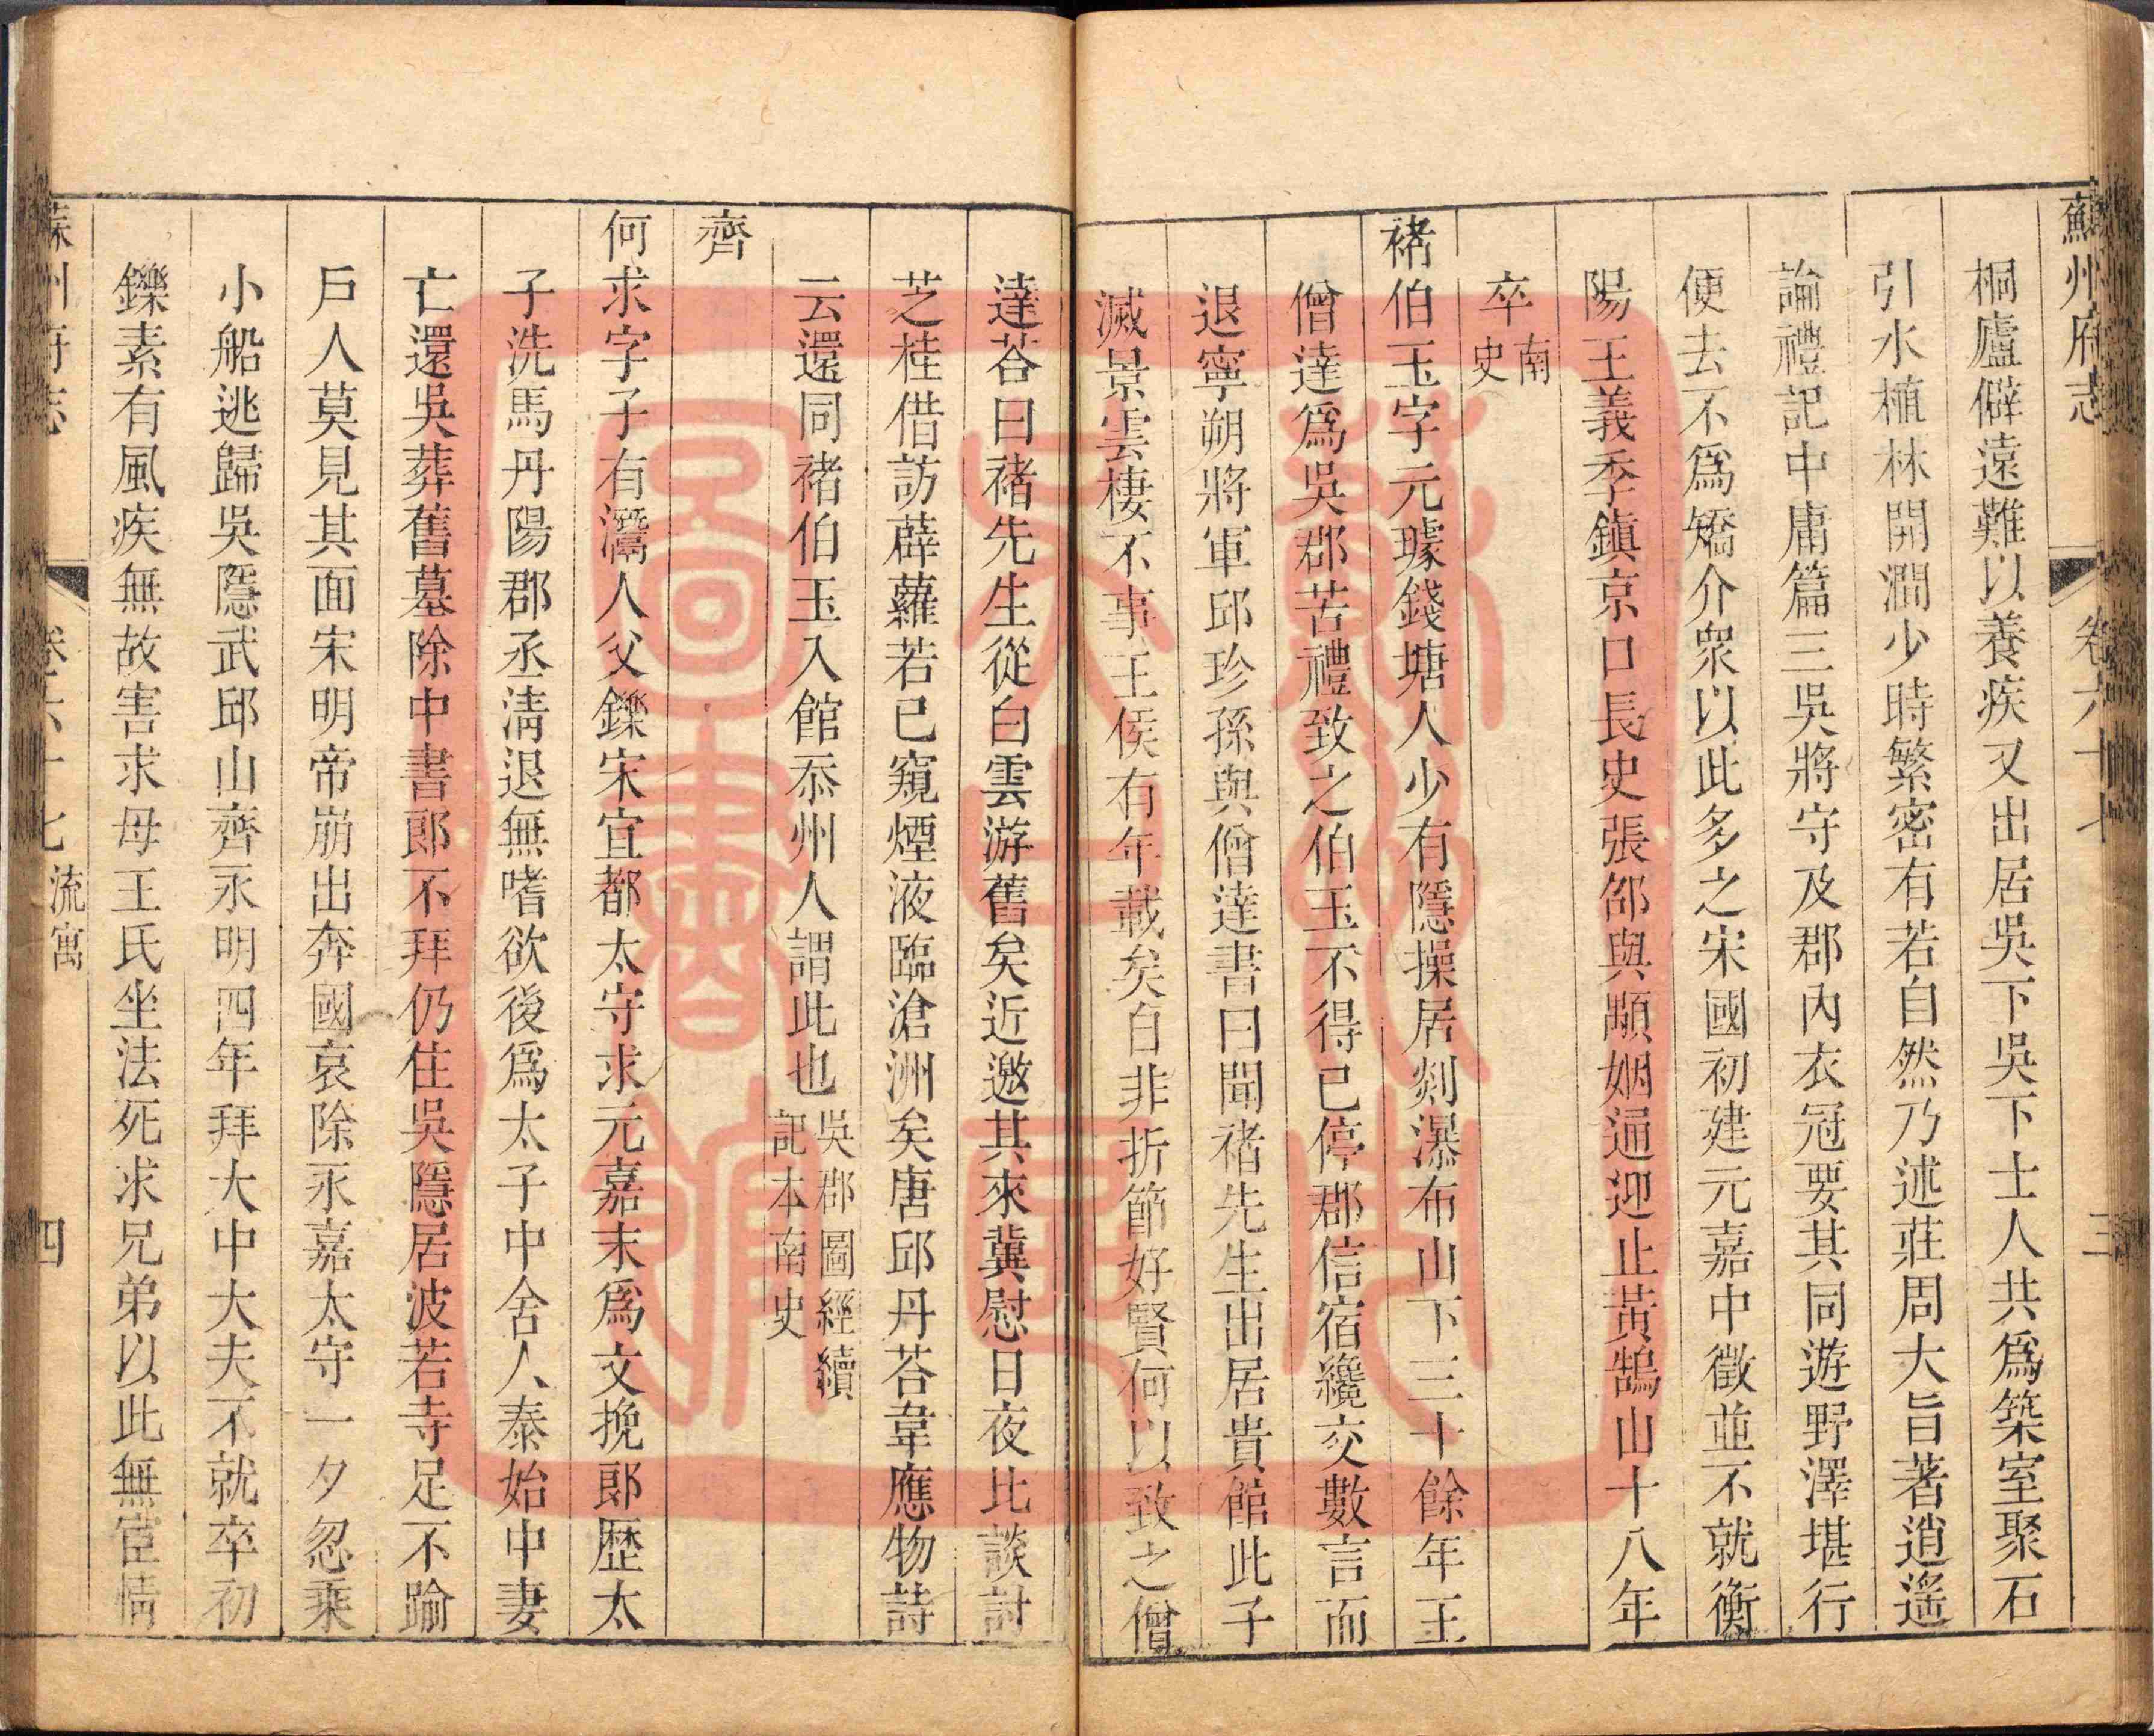 蘇州府志 卷六十七 三
桐廬僻遠難以養疾又出居吳下吳下士人共爲築室聚石
引水植林開澗少時繁密有若自然乃述莊周大旨著逍遙
論禮記中庸篇三吳將守及郡內衣冠要其同遊野澤堪行
便去不爲矯介衆以此多之宋國初建元嘉中徵並不就衡
陽王義季鎮京口長史張邵與顒姻通迎止黃鵠山十八年
卒南史
褚伯玉字元璩錢塘人少有隱操居剡瀑布山下三十餘年王
僧達爲吳郡苦禮致之伯玉不得已停郡信宿纔交數言而
退寧朔將軍邱珍孫與僧達書曰聞褚先生出居貴館此子
滅景雲棲不事王侯有年載矣自非折節好賢何以致之僧
達荅曰褚先生從白雲游舊矣近邀其來冀慰日夜比談討
芝桂借訪薜蘿若已窺煙液臨滄洲矣唐邱丹荅韋應物詩
云還同褚伯玉入館忝州人謂此也吳郡圖經續記本南史
齊
何求字子有灊人父鑠宋宜都太守求元嘉末爲文挽郎歷太
子洗馬丹陽郡丞淸退無嗜欲後爲太子中舍人泰始中妻
亡還吳葬舊墓除中書郎不拜仍住吳隱居波若寺足不踰
戶人莫見其面宋明帝崩出奔國哀除永嘉太守一夕忽乘
小船逃歸吳隱武邱山齊永明四年拜大中大夫不就卒初
鑠素有風疾無故害求母王氏坐法死求兄弟以此無宦情
蘇州府志 卷六十七 流寓 四